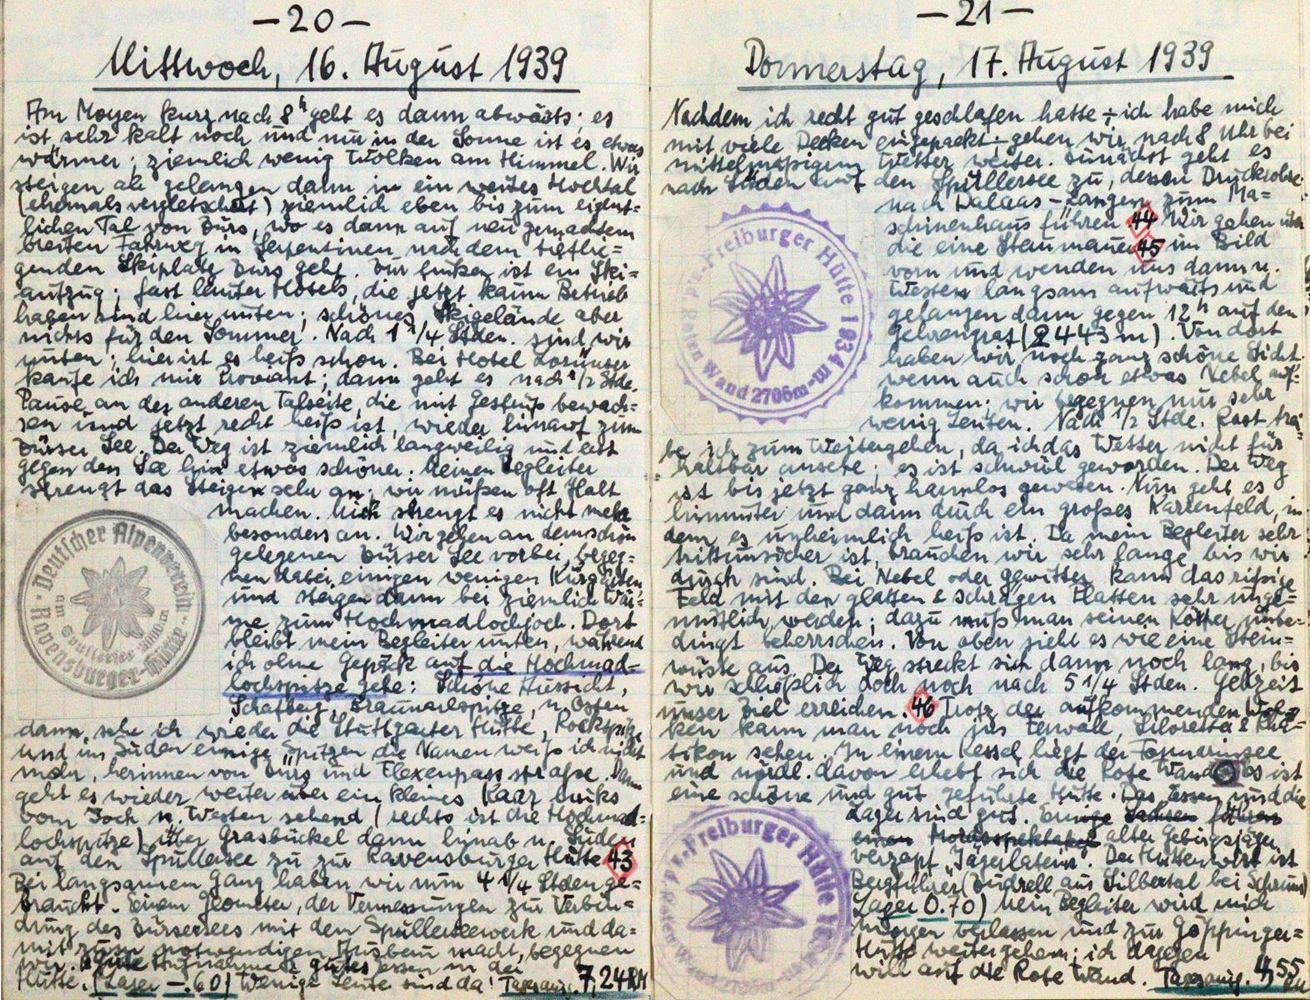 -20-
Mittwoch, 16. August 1939
Am Morgen kurz nach 8 h geht es dann abwärts; es
ist sehr kalt noch und nur in der Sonne ist es etwas
wärmer; ziemlich wenig Wolken am Himmel. Wir
steigen ab gelangen dann in ein weites Hochtal
(ehemals vergletschert) ziemlich eben bis zum eigent=
lichen Tal von Zürs, wo es dann auf neu gemachtem
breiten Fahrweg in Serpentinen nach dem tieflie=
genden Skiplatz Zürs geht. Zur linken ist ein Ski=
aufzug; fast lauter Hotels, die jetzt kaum Betrieb
haben sind hier unten; schönes Skigelände aber
nichts für den Sommer. Nach 1 1/4 Stden. sind wir
unten; hier ist es heiß schon. Bei Hotel Zürser
kaufe ich mir Proviant; dann geht es nach 1/2 Stde.
Pause an der anderen Talseite, die mit Gestrüpp bewach=
sen und jetzt recht heiß ist, wieder hinauf zum
Zürser See. Der Weg ist ziemlich langweilig und erst
gegen den See hin etwas schöner. Meinen Begleiter
strengt das Steigen sehr an, wir müßen oft Halt
machen. Mich strengt es nicht mehr
besonders an. Wir gehen an dem schön
gelegenen Zürser See vorbei, begeg=
nen dabei einigen wenigen Kurgästen
und steigen dann bei ziemlich Wär=
me zum Hochmadlochjoch. Dort
bleibt mein Begleiter unten, während
ich ohne Gepäck auf die Hochmad=
lochspitze gehe: Schöne Aussicht,
Schafberg, Braunarlspitze, n. Osten
dann sehe ich wieder die Stuttgarter Hütte, Rockspitze
und im Süden einige Spitzen die Namen weiß ich nicht
mehr, herinnen von Zürs und Flexenpassstraße. Dann
geht es wieder weiter über ein kleines Kaar links
vom Joch n. Westen sehend (rechts ist die Hochmad=
lochspitze) über Grasbückel dann hinab n. Süden
auf den Spullersee zu zur Ravensburger Hütte 43
Bei langsamem Gang haben wir nun 4 1/4 Stden ge=
braucht. Einem Geometer, der Vermessungen zur Verbin=
dung des Zürsersees mit dem Spullerseewerk und da=
mit zum notwendigen Ausbau macht, begegnen
wir. Gute Aufnahme & gutes Essen in der
Hütte. (Lager -.60) Wenige Leute sind da! Tagesausg. 7,24 RM
Deutscher Alpenverein
Ravensburger-Hütte
am Spullersee
-21-
Donnerstag, 17. August 1939
Nachdem ich recht gut geschlafen hatte ÷ ich habe mich
mit viele Decken eingepackt ÷ gehen wir nach 8 Uhr bei
mittelmäßigem Wetter weiter. Zunächst geht es
nach Süden auf den Spullersee zu, dessen Druckrohre
nach Dalaas-Langen zum Ma=
schinenhaus führen 44 Wir gehen über
die eine Staumauer 45 im Bild
vorn und wenden uns dann n.
Westen langsam aufwärts und
gelangen dann gegen 12 h auf den
Gehrengrat (2443 m). Von dort
haben wir noch ganz schöne Sicht
wenn auch schon etwas Nebel auf=
kommen; wir begegnen nur sehr
wenig Leuten. Nach 1/2 Stde. Rast trei=
be ich zum Weitergehen, da ich das Wetter nicht für
haltbar ansehe; es ist schwül geworden. Der Weg
ist bis jetzt ganz harmlos gewesen. Nun geht es
hinunter und dann durch ein großes Karrenfeld, in
dem es unheimlich heiß ist. Da mein Begleiter sehr
trittunsicher ist, brauchen wir sehr lange bis wir
durch sind. Bei Nebel oder Gewitter kann das rissige
Feld mit den glatten & schrägen Platten sehr unge=
mütlich werden; dazu muß man seinen Körper unbe=
dingt beherrschen. Von oben sieht es wie eine Stein=
wüste aus. Der Weg streckt sich dann noch lang, bis
wir schließlich doch noch nach 5 1/4 Stden. Gehzeit
unser Ziel erreichen. 46 Trotz der aufkommenden Wol=
ken kann man noch ins Ferwall, Silvretta & Rhä=
tikon sehen. In einem Kessel liegt der Formarinsee
und nördl. davon erhebt sich die Rote Wand. Es ist
eine schöne und gut geführte Hütte. Das Essen und die
Lager sind gut. Einige
alter Gebirgsjäger
verzapft "Jägerlatein". Der Hüttenwirt ist
Bergführer (Zudrell aus Silbertal bei Schruns)
Lager 0.70) Mein Begleiter wird mich
morgen verlassen und zur Göppinger=
Hütte weitergehen; ich dagegen
will auf die Rote Wand. Tagesausg. 4,55
Freiburger Hütte 1934 m
Roten Wand 2706m
Freiburger Hütte
Roten Wand 2706m